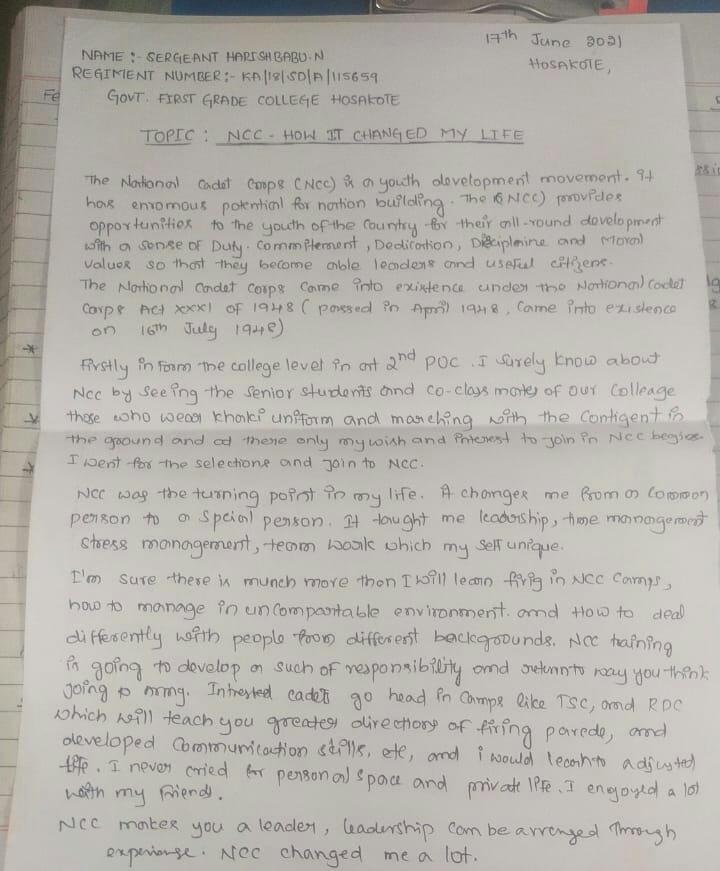 17th June 2021
HOSAKOTE,
NAME :- SERGEANT HARISH BABU.N
REGIMENT NUMBER :- KA/18/SD/A/115659
GOVT. FIRST GRADE COLLEGE HOSAKOTE
TOPIC : NCC - HOW IT CHANGED MY LIFE
The National Cadet Corps (NCC) is a youth development movement. It
has enromous potential for nation building. The (NCC) provides
opportunities to the youth of the country for their all-round development
with a sense of Duty. Commitement, Dedication, Discipleine and Moral
values so that they become able leaders and useful citizens.
The National Cadet Corps Came into existence under the National Cadet
Corps Act XXXI of 1948 ( passed in April 1948, Came into existence
on 16th July 1948)
Firstly in Form the college level in at 2nd PUC. I surely know about
NCC by seeing the senior students and co-class mates of our Colleage
those who wear khaki uniform and marching with the Contigent in
the ground and at there only my wish and interest to join in NCC begins.
I went for the selections and join to NCC.
NCC was the turning point in my life. It changes me from a Common
person to a special person. It taught me leadership, time management
stress management, team work which my self unique.
I'm sure there is munch more then I will learn in NCC Camps,
how to manage in uncompartable environment. and How to deal
differently with people from different backgrounds. NCC training
is going to develop a such of responsibility and way you think
going to. Intrested cadets go head in Camps like TSC, and RDC
which will teach you greater directions of firing parede, and
developed Communication skills, etc, and i would learn to adjusted
life. I never cried for personal space and private life. I engoyed a lot
with my friends.
NCC makes you a leader, leadership can be arrenged through
experianse. NCC changed me a lot.